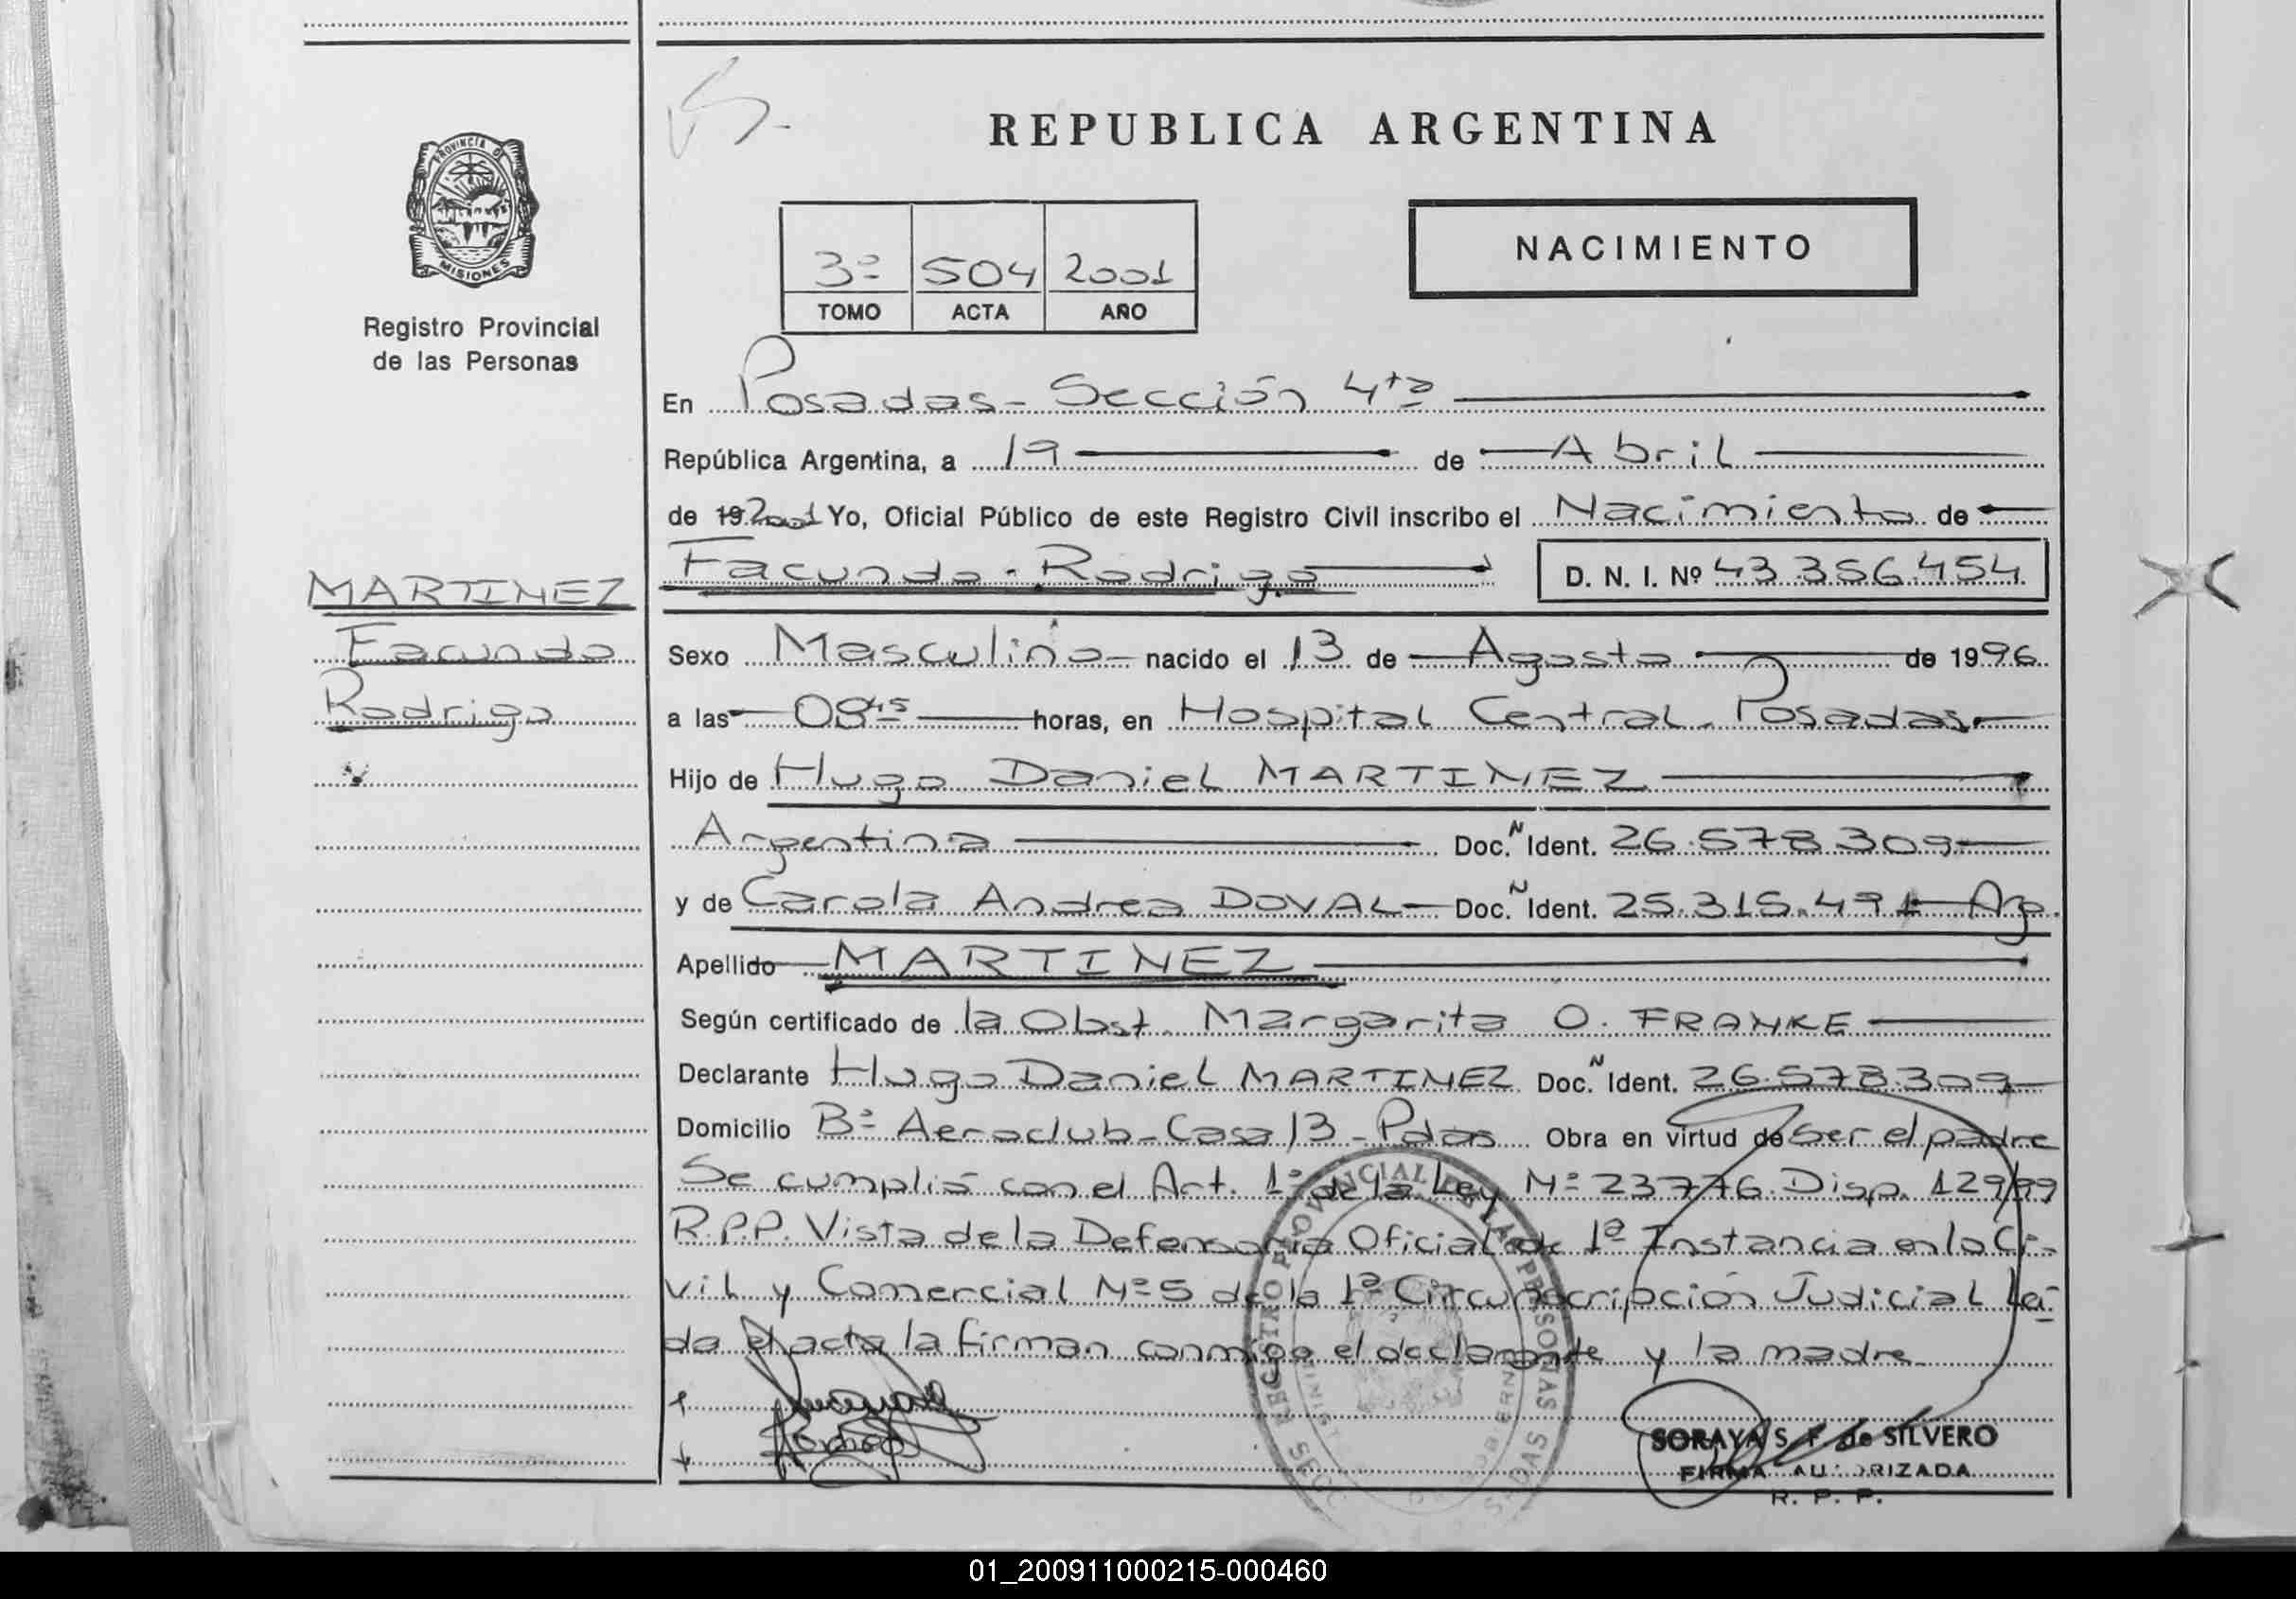 PROVINCIA D
MISIONES
Registro Provincial
de las Personas
MARTINEZ
Facundo
Rodrigo
REPUBLICA ARGENTINA
3º 504 2001
TOMO ACTA AÑO
NACIMIENTO
En Posadas - Sección 4ta
República Argentina, a 19 de Abril
de 19 2001 Yo, Oficial Público de este Registro Civil inscribo el Nacimiento de
Facundo Rodrigo D. N. I. Nº 43 356.454
Sexo Masculino nacido el 13 de Agosto de 1996
a las 08 45 horas, en Hospital Central - Posadas
Hijo de Hugo Daniel MARTINEZ
Argentina Doc. N Ident. 26.578.309
y de Carola Andrea DOVAL Doc. N Ident. 25.315.491 Arg.
Apellido MARTINEZ
Según certificado de la Obst. Margarita O. FRANKE
Declarante Hugo Daniel MARTINEZ Doc. N Ident. 26.578.309
Domicilio Bº Aeroclub - Casa 13 - Pdas Obra en virtud de ser el padre
Se cumplió con el Art. 1º de la Ley Nº 23776. Disp. 129/99
R.P.P. Vista de la Defensoria Oficial de 1ª Instancia en lo Ci-
vil y Comercial Nº 5 de la 1ª Circunscripción Judicial Leí-
da el acta la firman conmigo el declarante y la madre
REGISTRO PROVINCIAL DE LAS PERSONAS
SORAYA S. F. de SILVERO
FIRMA AUTORIZADA
R. P. P.
01_200911000215-000460